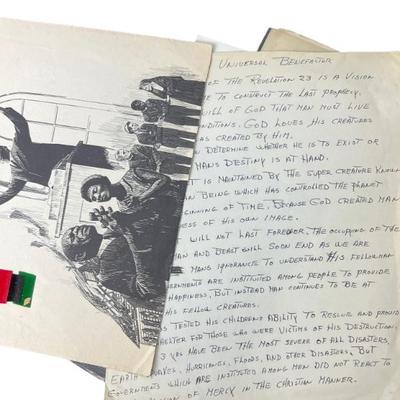 Universal Benefactor
of the Revelation 23 is a vision
e to construct the last prophecy.
will of God that man must live
nditions. God loves his creatures
as created by him.
n determine whether he is to exist or
mans destiny is at hand.
t is maintained by the super creature known
n being which has controlled the planet
ginning of time. Because God created man
ness of his own image.
will not last forever. The occupying of the
man and beast will soon end as we are
mans ignorance to understand his fellowman
ernments are instituted among people to provide
happiness, but instead man continues to be at
his fellow creatures.
s tested his childrens ability to rescue and provid
helter for those who were victims of his destruction.
3 yrs have been the most severe of all disasters,
earth quakes, hurricanes, floods, and other disasters. But
governments which are instituted among men did not react to
sion of mercy in the Christian manner.